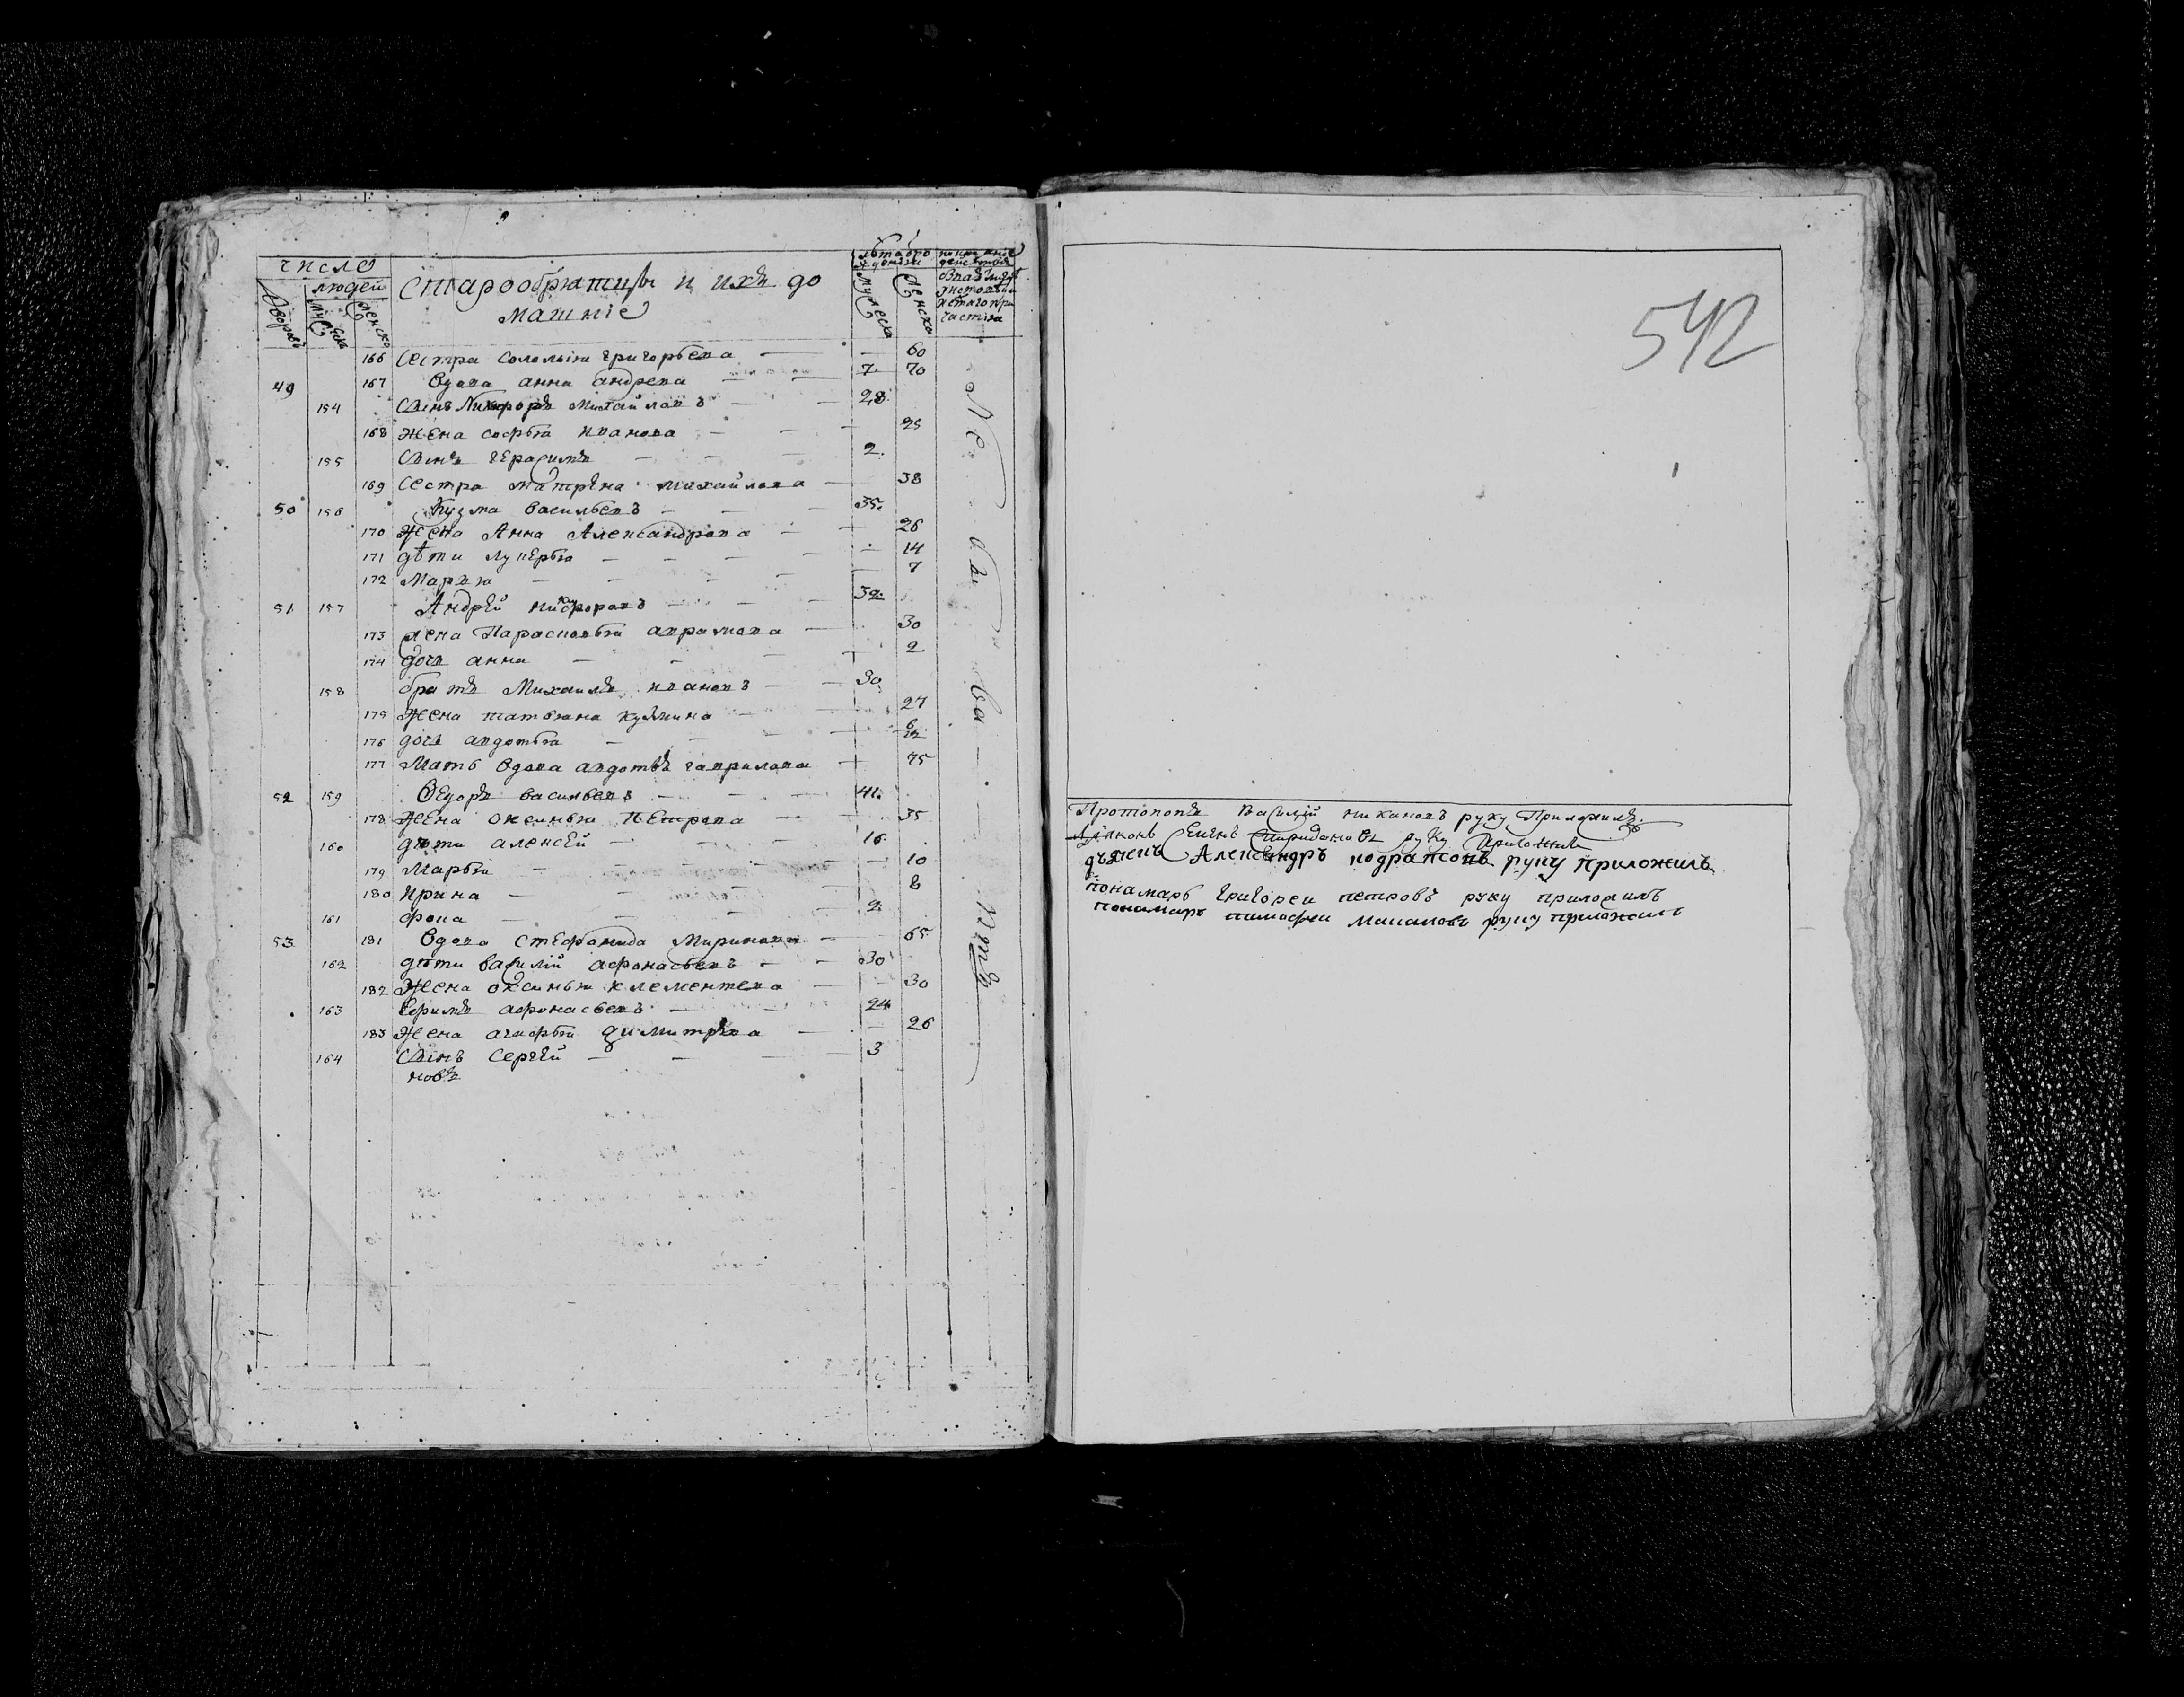 число
людей
Дворовъ
Муска
Женска
Старообрятцы и ихъ до
машніе
Мужеска
Женска
166 Сестра Соломыя Григорьева — — 60
49 167 Вдова анна андрева — — 7 70
154 Сынъ Никифоръ Михайловъ — — 28
168 Жена софья иванова — — 25
155 Сынъ герасимъ — — — 2
169 Сестра матрѣна михайлова — 38
50 156 Кузма Васильевъ — — — 35
170 Жена Анна Александрова — — 26
171 дѣти лукерья — — — — 14
172 Марья — — — — 7
51 157 Андрей никифоровъ — — — 32
173 жена Парасковья аврамова — 30
174 дочь анна — — — 2
158 братъ Михаилъ ивановъ — — 30
175 Жена татьяна кузмина — 27
176 дочь авдотья — — — — 6
177 Мать вдова авдотья гаврилова — 75
52 159 Ѳедоръ васильевъ — — — 41
178 Жена оксинья Петрова — — 35
160 дѣти алексей — — — 16
179 Марья — — 10
180 Ирина — — — — 8
161 фока — — — — 2
53 181 Вдова Стефанида Миринова — 65
162 дѣти василій афонасьевъ — — 30
182 Жена оксинья клементева — — 30
163 Ефимъ афонасьевъ — — 24
183 Жена агнофья димитрева — — 26
164 Сынъ Сергѣй — — — 3
новъ
542
Протопопъ Василій никановъ руку Приложилъ
руку Приложилъ
дьяченъ Александръ кодратовъ руку приложилъ
пономарь григореи петровъ руку приложилъ
пономарь тимофеи михаиловъ руку приложилъ